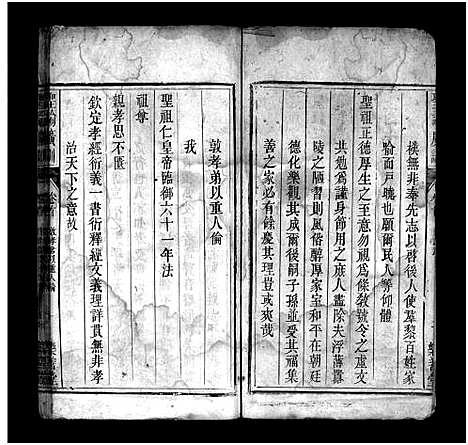 樸無非奉先志以啓後人使羣黎百姓家
喻而戶曉也願爾民人等仰體
聖祖正德厚生之至意勿視爲條敎號令之虛文
共勉爲謹身節用之庶人盡除夫浮薄囂
陵之陋習則風俗醇厚家室和平在朝廷
德化樂觀其成爾後嗣子孫並受其福積
善之家必有餘慶其理豈或爽哉
敦孝弟以重人倫
我
聖祖仁皇帝臨御六十一年法
祖尊
親孝思不匱
欽定孝經衍義一書衍釋經文義理詳貫無非孝
治天下之意故